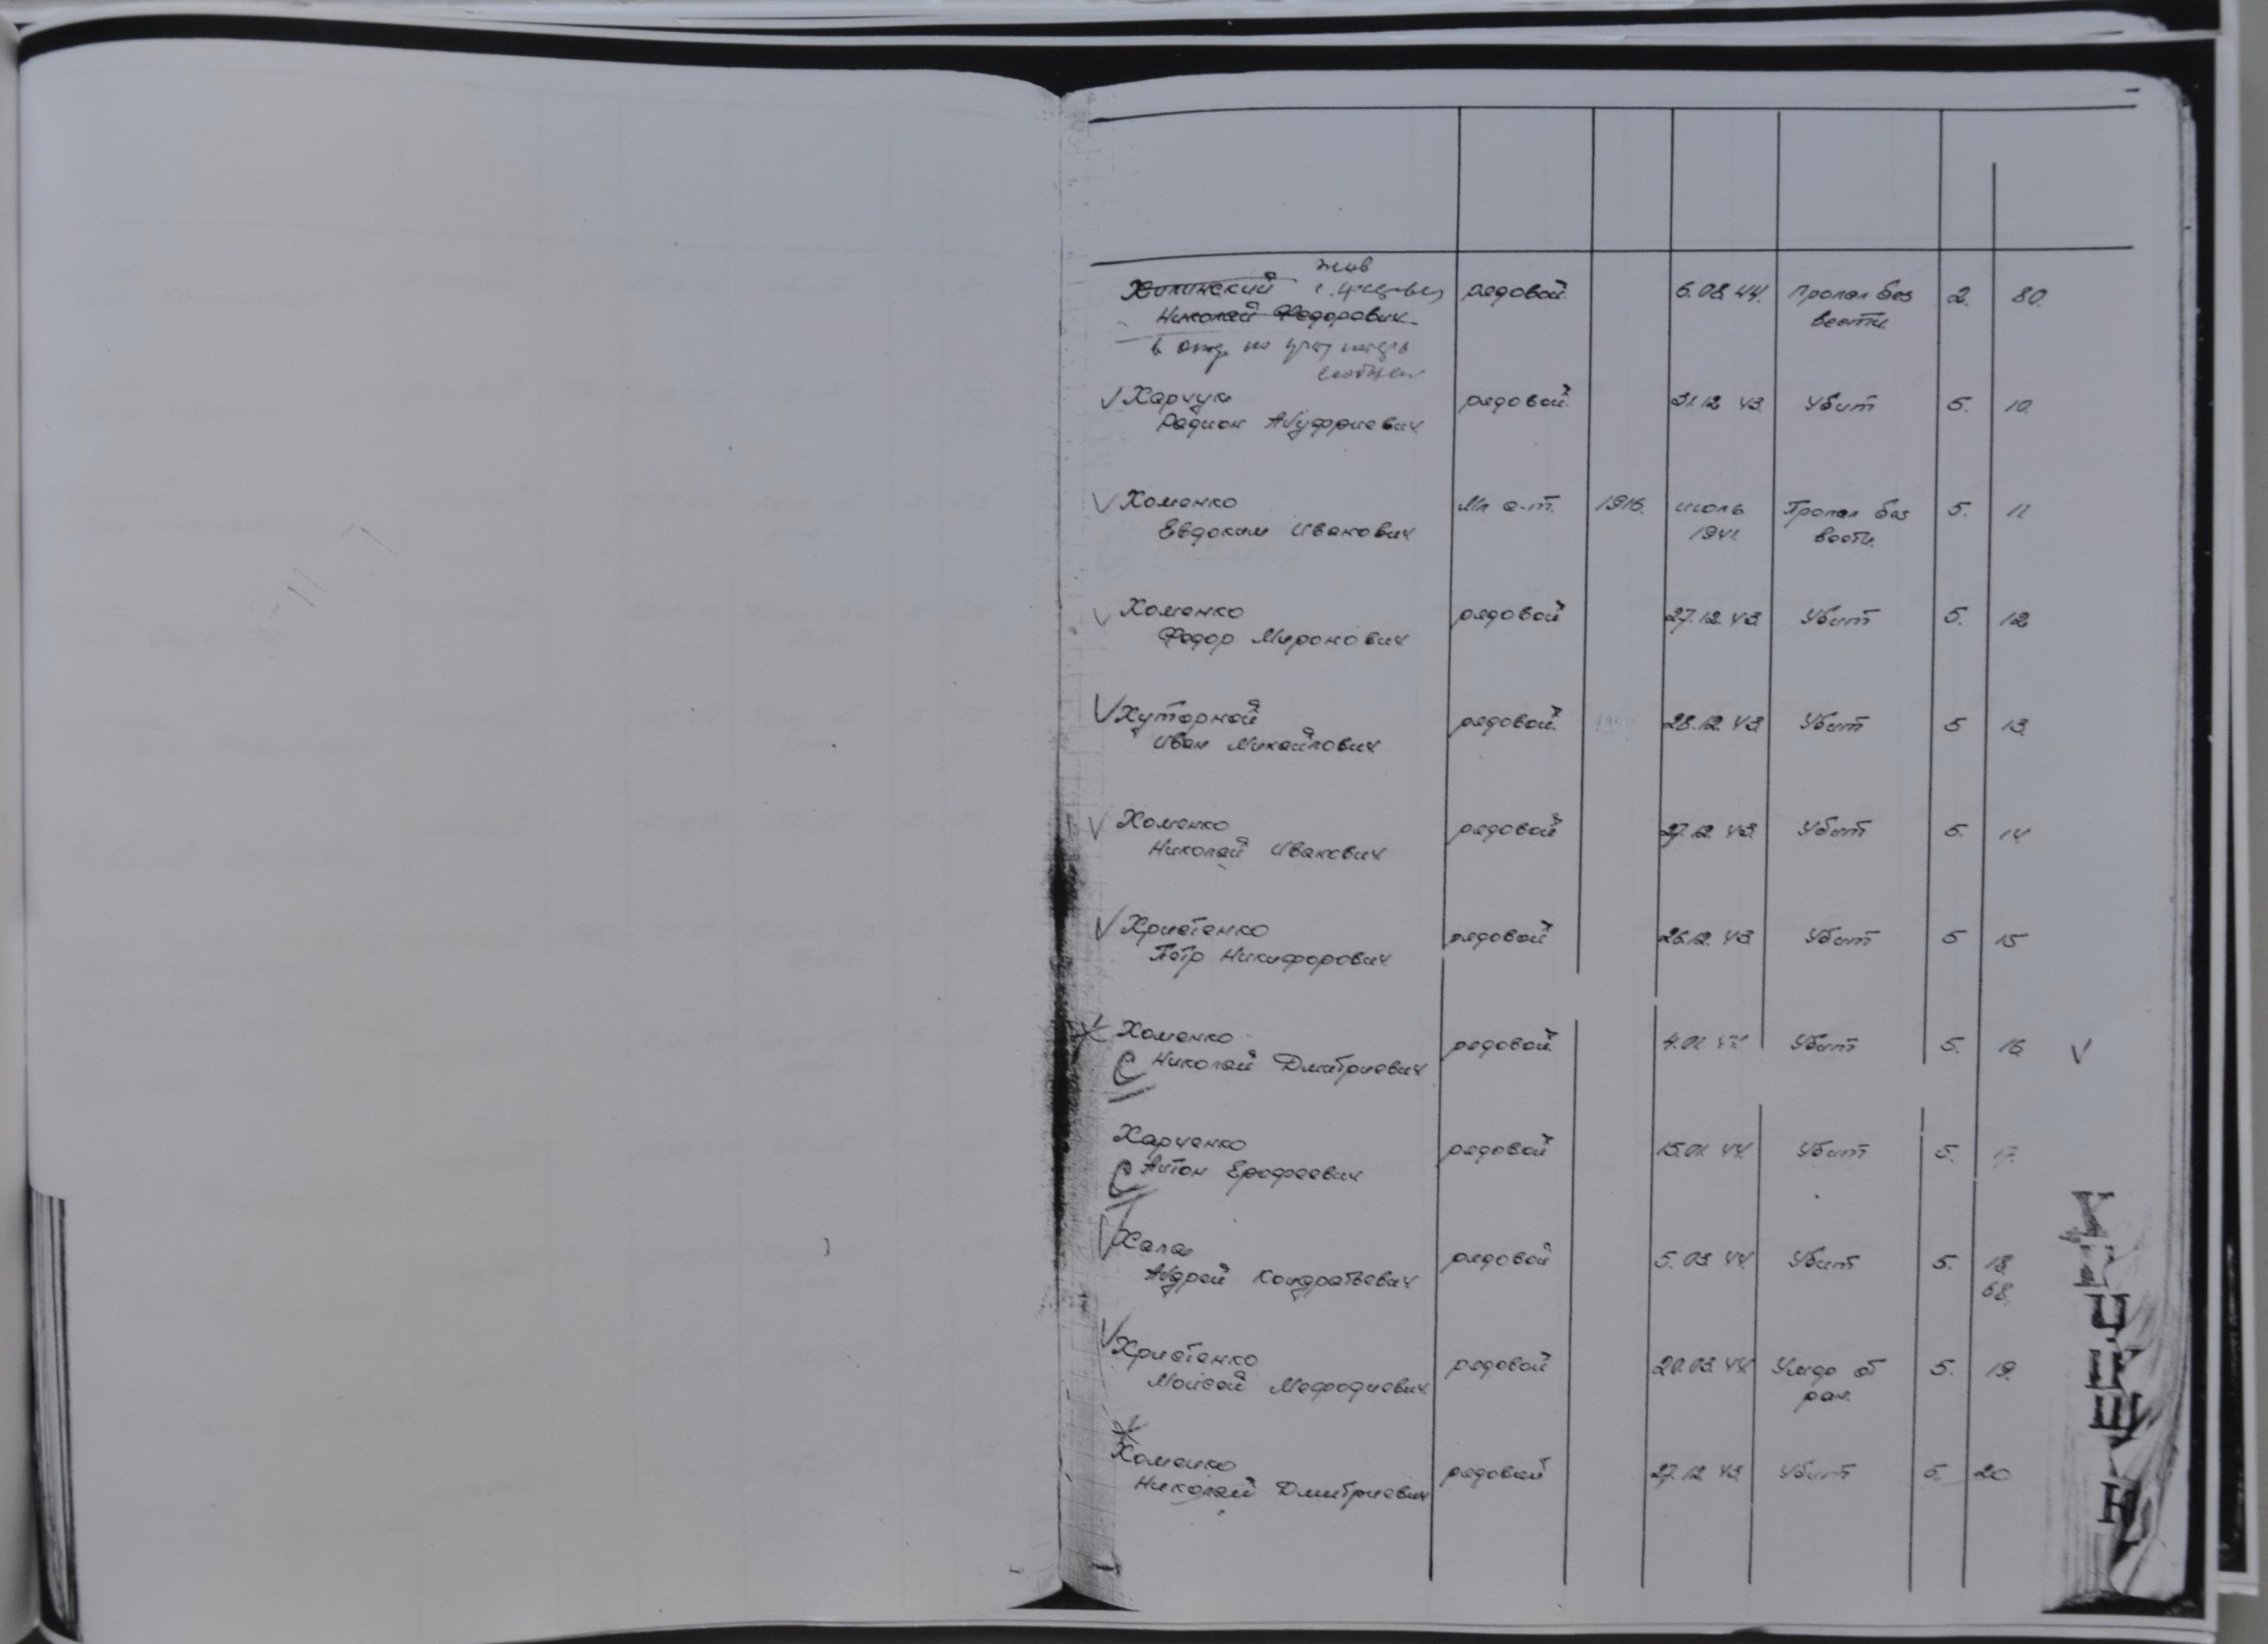 жив
Хилинский рядовой. 6.08.44. Пропал без 2. 80.
Николай Федорович вести.
в на
Харчук рядовой. 31.12 43. Убит 5. 10.
Радион Ануфриевич
Хоменко Мл с-т. 1916. июль Пропал без 5. 11.
Евдоким Иванович 1941. вести.
Хоменко рядовой 27.12. 43. Убит 5. 12
Федор Миронович
Хуторной рядовой. 28.12. 43 Убит 5 13.
Иван Михайлович
Хоменко рядовой 27.12. 43 Убит 5. 14.
Николай Иванович
Христенко рядовой 26.12. 43 Убит 5 15
Петр Никифорович
Хоменко рядовой. 4.01 44 Убит 5. 16
Николай Дмитриевич
Харченко рядовой 15.01 44. Убит 5. 17.
Антон Ерофеевич
Хала рядовой 5.03 44. Убит 5. 18.
Андрей Кондратьевич 68.
Христенко рядовой 20.03.44. Умер от 5. 19.
Моисей Мефодиевич ран.
Хоменко рядовой 27.12 43. Убит 5. 20
Николай Дмитриевич